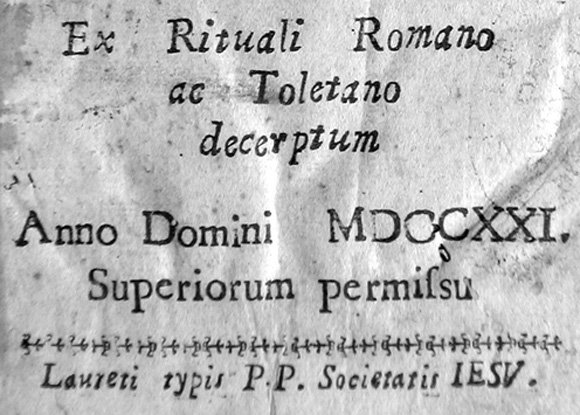 Ex Rituali Romano
ac Toletano
decerptum
Anno Domini MDCCXXI.
Superiorum permiſsu
Laureti typis P.P. Societatis IESV.